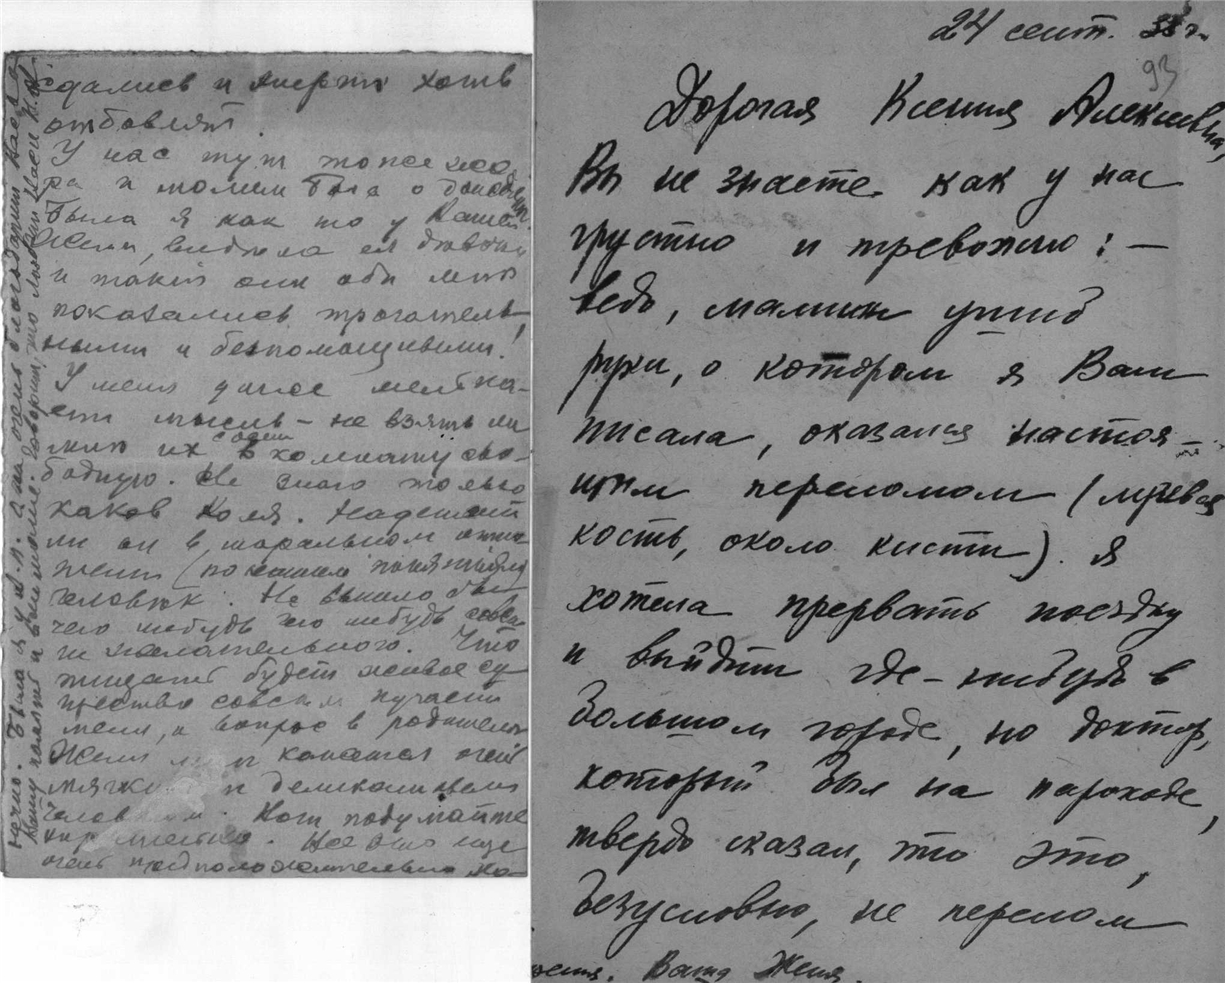 сдались и
отбавлят.
У нас тут тоже жа-
ра и молим Бога о дожде
Была я как то у Вашей
Жени, видела ея
и такия они обе мне
показались трогатель-
ными и беспомощными!
У меня даже мелька-
ет мысль – не взять ли
мне их с собой в комнату сво-
бодную. Не знаю только
каков Коля. Надежный
ли он в моральном отно-
жении (по нашим понятиям)
человек. Не вышло бы
чего нибудь
не желательного. Что
пищать будет живое су-
щество совсем не пугает
меня, а вопрос в родителях
Женя мне кажется очень
мягким и деликатным
человеком. Вот подумайте
Все это еще
очень предположительно ко-
нечно. Была я у А.П. она очень благодарит Вас за
Вашу память и внимание. Говорит, что
24 сент. 38 г.
93
Дорогая Ксения Алексеевна,
Вы не знаете как у нас
грустно и тревожно: –
ведь, мамин ушиб
руки, о котором я Вам
писала, оказался настоя-
щим переломом (лучевая
кость, около кисти). Я
хотела прервать поездку
и выйти где-нибудь в
большом городе, но доктор,
который был на пароходе,
твердо сказал, что это,
безусловно, не перелом
Ваша Женя.